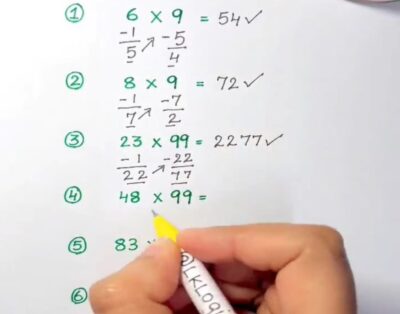 ① 6 × 9 = 54 ✓
-1 ↗ -5
5 4
② 8 × 9 = 72 ✓
-1 ↗ -7
7 2
③ 23 × 99 = 2277 ✓
-1 ↗ -22
22 77
④ 48 × 99 =
⑤ 83 ×
⑥